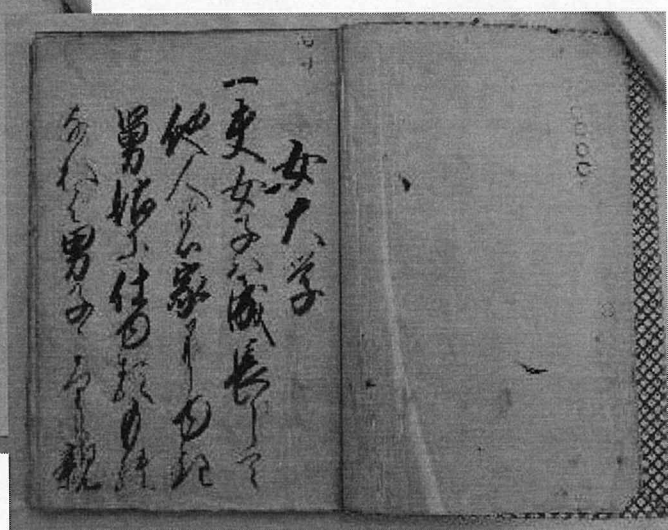 女大学
一夫女子ハ成長して
他人の家に
舅姑に仕ゆるもの
なれハ男子よりも親